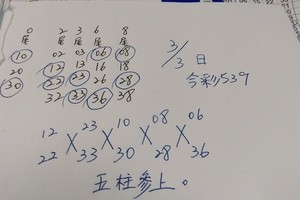 0 2 3 6 8
尾 尾 尾 尾 尾
10 02 03 06 08
20 12 13 16 18
30 22 23 26 28
32 33 36 38
3/3日
今彩539
12 23 10 08 06
X X X X
22 33 30 28 36
五柱參上。